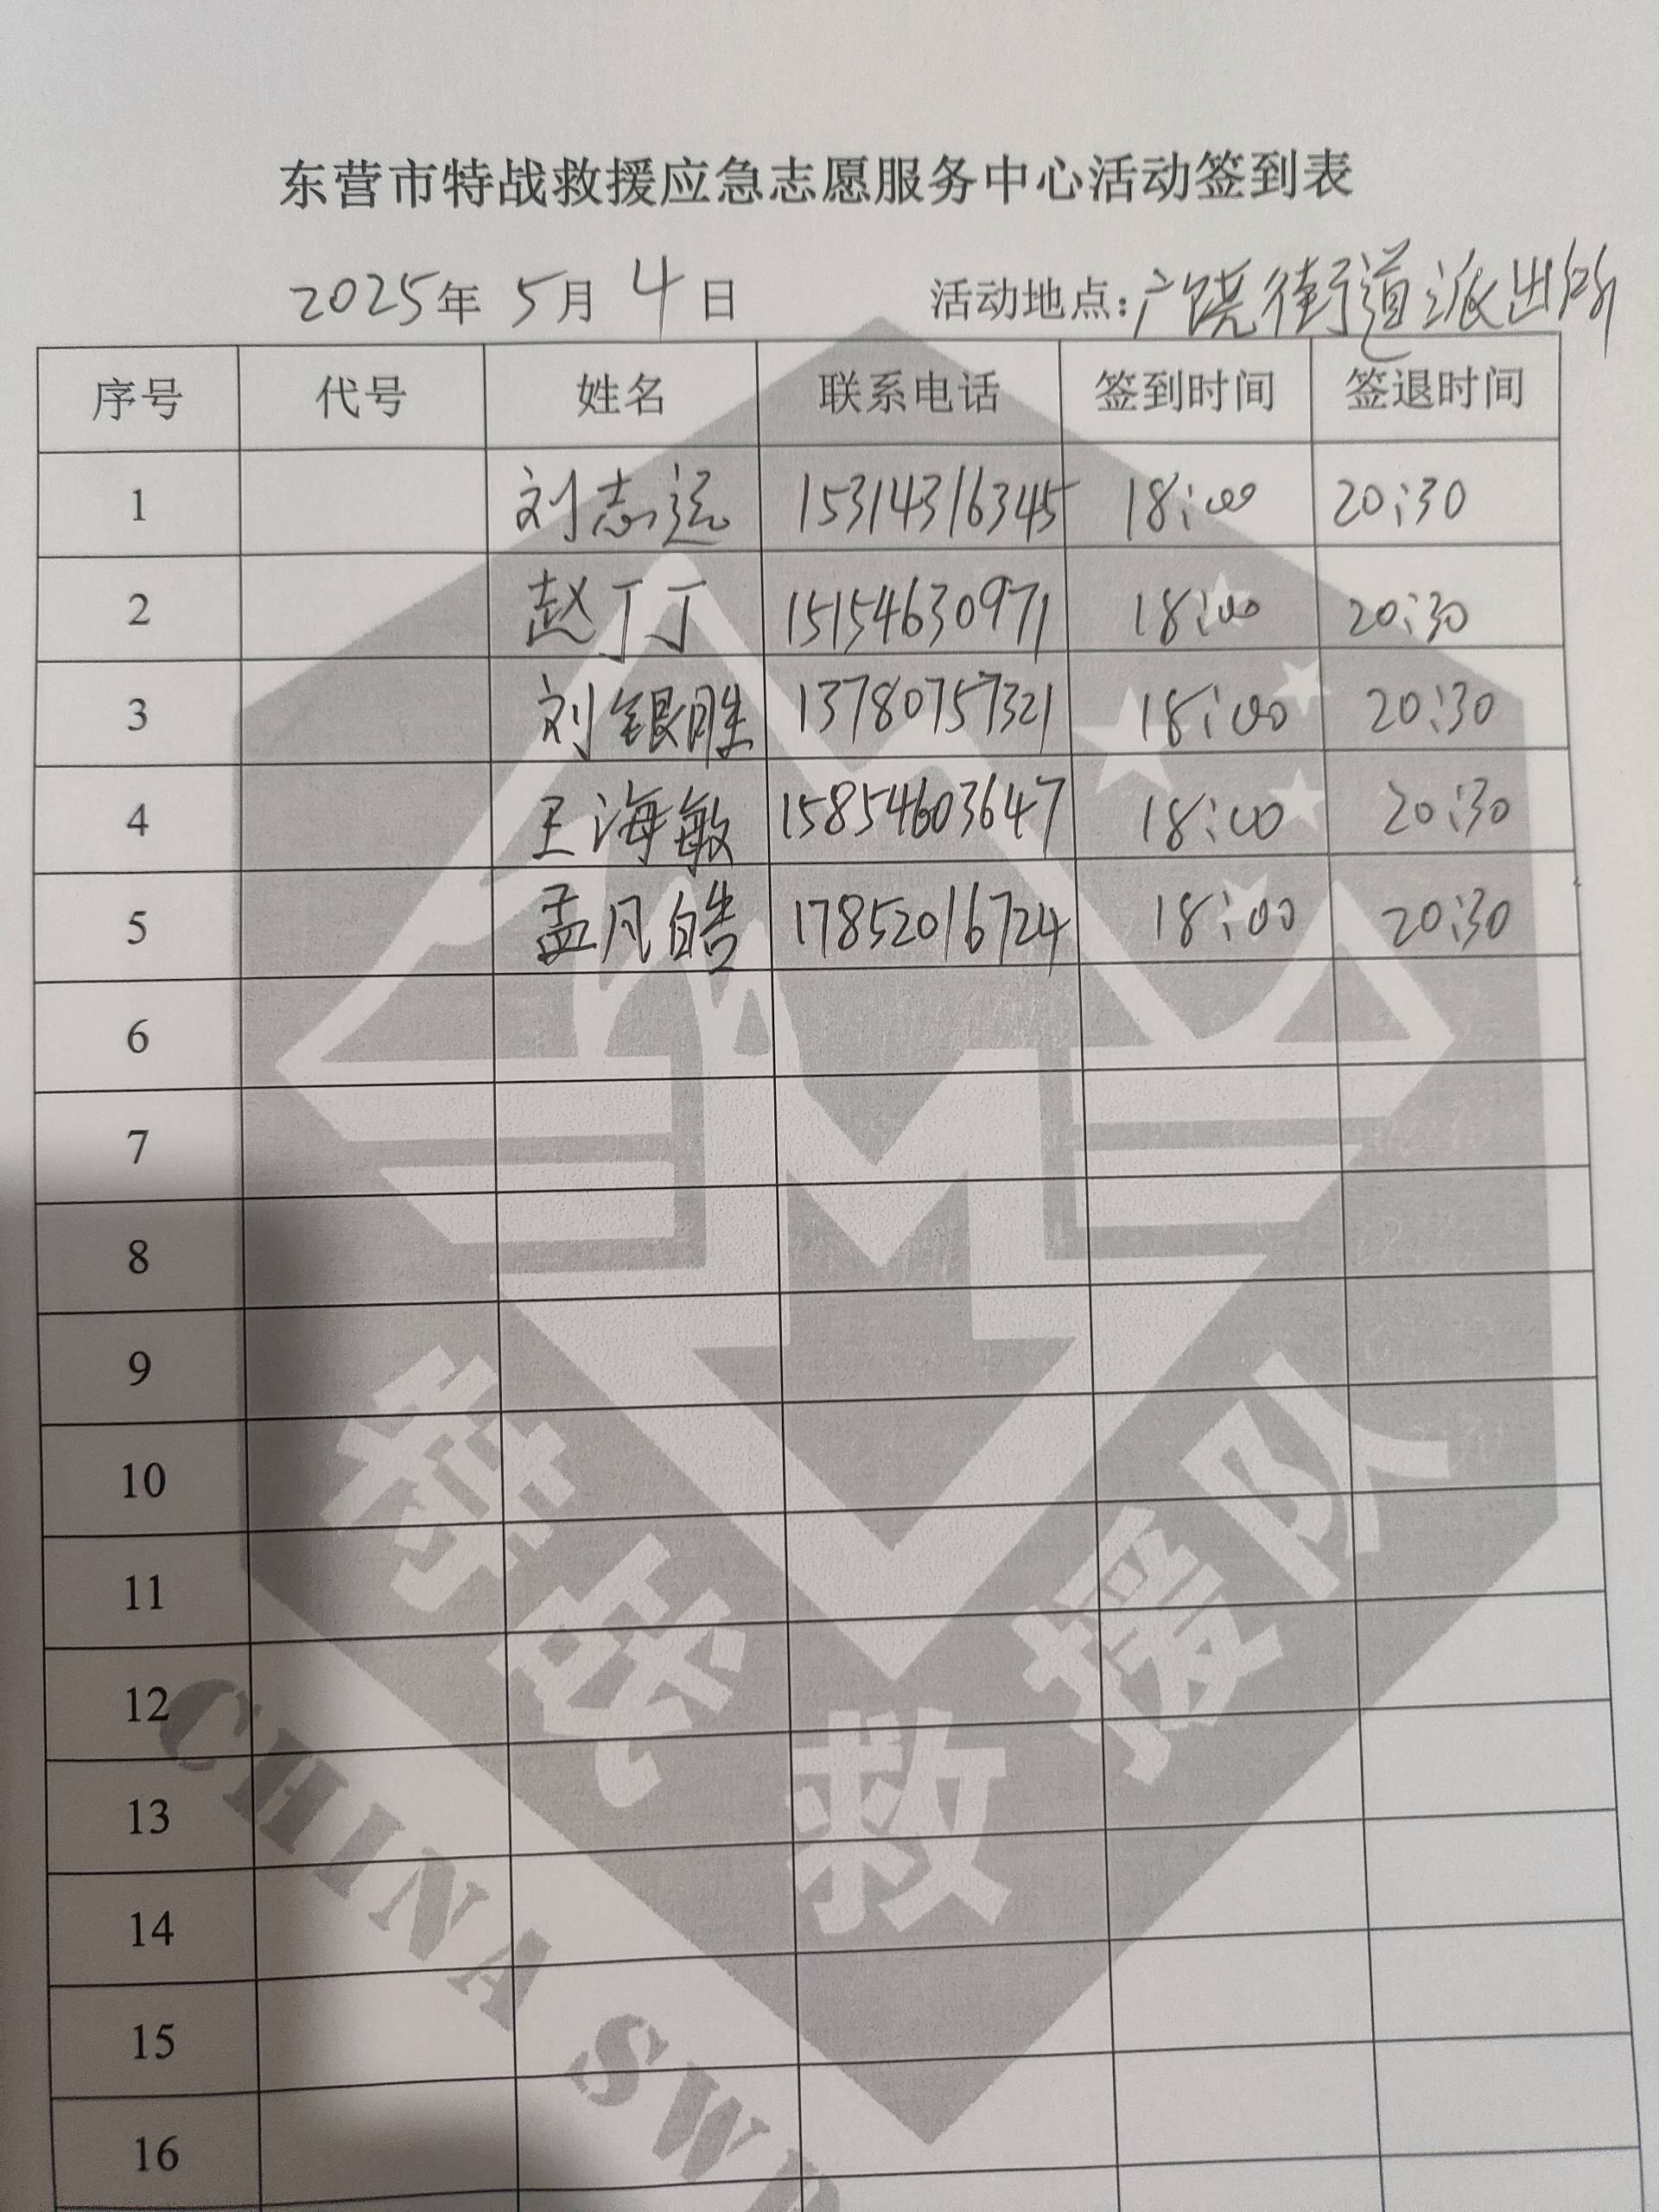 东营市特战救援应急志愿服务中心活动签到表
2025年 5月 4日 活动地点:广饶街道派出所
序号 代号 姓名 联系电话 签到时间 签退时间
1 刘志远 15314316345 18:00 20:30
2 赵丁丁 15154630971 18:00 20:30
3 刘银胜 13780757321 18:00 20:30
4 王海敏 15854603647 18:00 20:30
5 孟凡皓 17852016724 18:00 20:30
6
7
8
9
10
11
12
13
14
15
16
特战救援队
CHINA SW